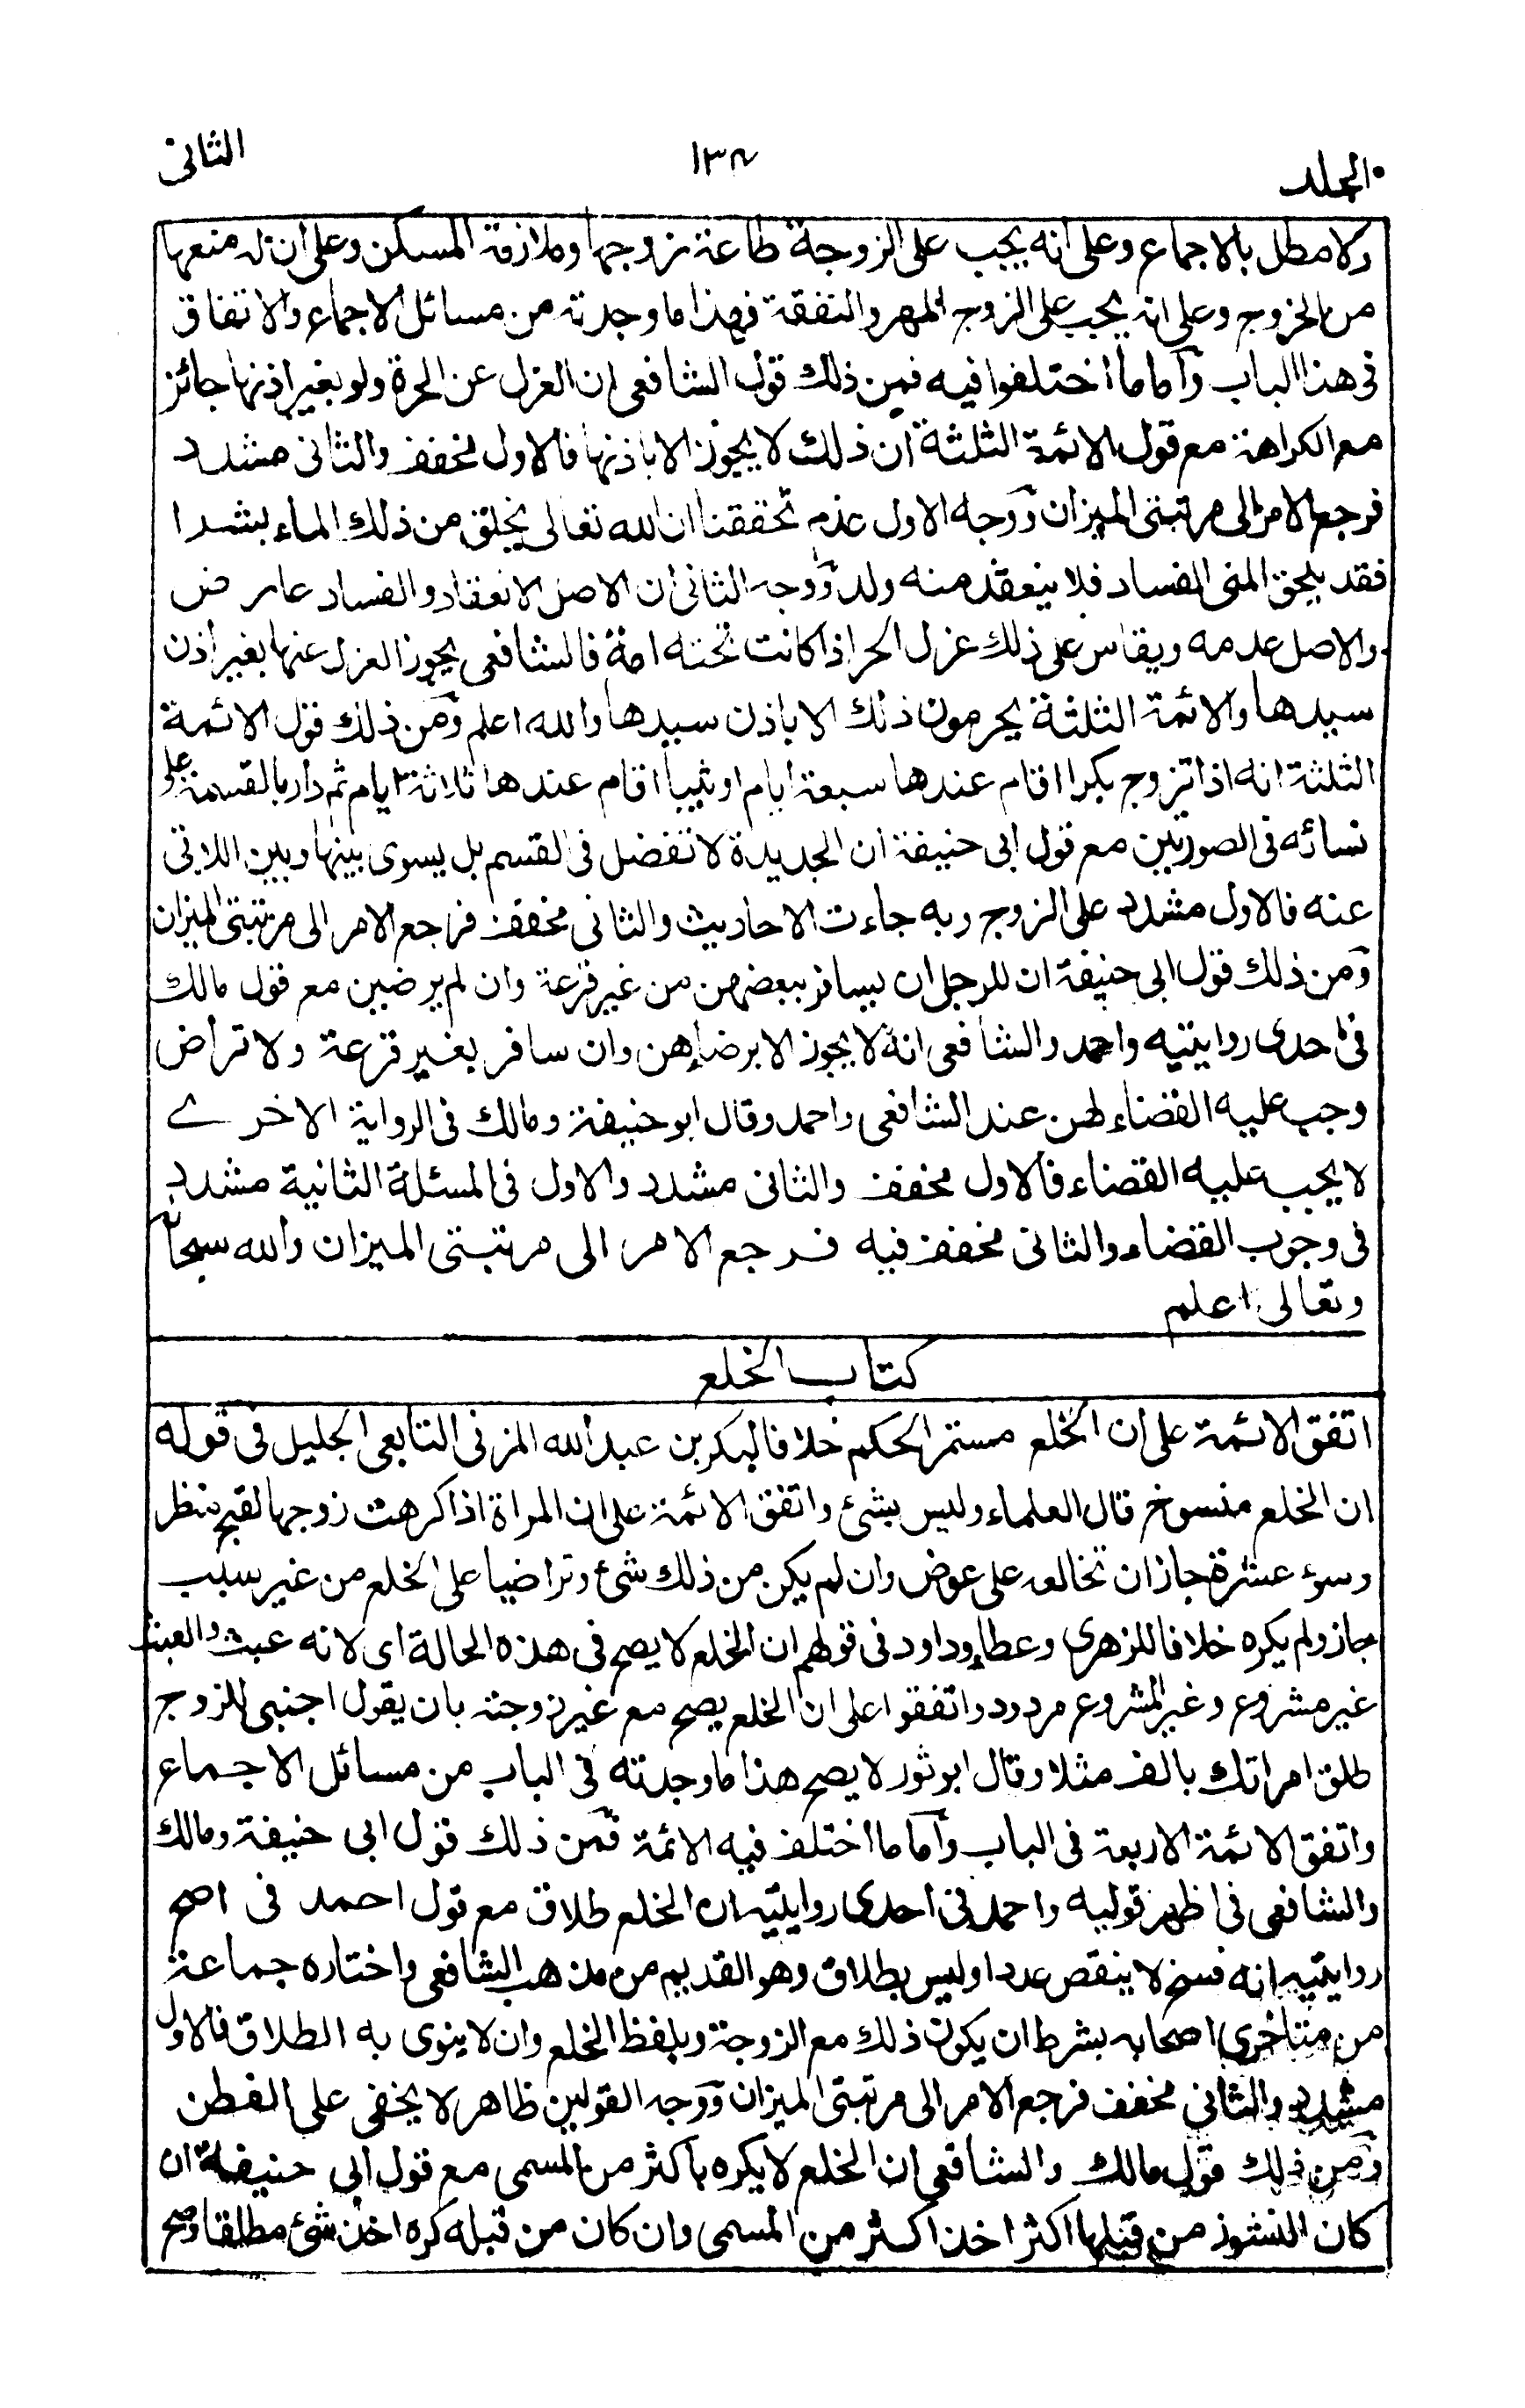 المجلد
١٣٨
الثانى
ولا مطل بالاجماع وعلى انه يجب على الزوجة طاعة زوجها وملازمة المسكن وعلى ان له منعها
من الخروج وعلى انه يجب على الزوج المهر والنفقة فهذا ما وجدته من مسائل الاجماع والاتفاق
فى هذا الباب وأما ما اختلفوا فيه فمن ذلك قول الشافعى ان العزل عن الحرة ولو بغير اذنها جائز
مع الكراهة مع قول الائمة الثلثة ان ذلك لا يجوز الا باذنها فالاول مخفف والثانى مشدد
فرجع الامر الى مرتبتى الميزان ووجه الاول عدم تحققنا ان الله تعالى يخلق من ذلك الماء بشرا
فقد يلحق المنى الفساد فلا ينعقد منه ولد ووجه الثانى ان الاصل الانعقاد والفساد عارض
والاصل عدمه ويقاس على ذلك عزل الحر اذا كانت تحته امة فالشافعى يجوز العزل عنها بغير اذن
سيدها والائمة الثلثة يحرمون ذلك الا باذن سيدها والله اعلم ومن ذلك قول الائمة
الثلثة انه اذا تزوج بكرا اقام عندها سبعة ايام او ثيبا اقام عندها ثلاثة ايام ثم دار بالقسمة على
نسائه فى الصورتين مع قول ابى حنيفة ان الجديدة لا تفضل فى القسم بل يسوى بينها وبين اللاتى
عنه فالاول مشدد على الزوج وبه جاءت الاحاديث والثانى مخفف فرجع الامر الى مرتبتى الميزان
ومن ذلك قول ابى حنيفة ان للرجل ان يسافر ببعضهن من غير قرعة وان لم يرضين مع قول مالك
فى احدى روايتيه واحمد والشافعى انه لا يجوز الا برضاهن وان سافر بغير قرعة ولا تراض
وجب عليه القضاء لهن عند الشافعى واحمد وقال ابو حنيفة ومالك فى الرواية الاخرے
لا يجب عليه القضاء فالاول مخفف والثانى مشدد والاول فى المسئلة الثانية مشدد
فى وجوب القضاء والثانى مخفف فيه فرجع الامر الى مرتبتى الميزان والله سبحانه
وتعالى اعلم
كتاب الخلع
اتفق الائمة على ان الخلع مستمر الحكم خلافا لبكر بن عبد الله المزنى التابعى الجليل فى قوله
ان الخلع منسوخ قال العلماء وليس بشئ واتفق الائمة على ان المراة اذا كرهت زوجها لقبح منظر
وسوء عشرة جاز ان تخالعه على عوض وان لم يكن من ذلك شئ وتراضيا على الخلع من غير سبب
جاز ولم يكره خلافا للزهرى وعطاء وداود فى قولهم ان الخلع لا يصح فى هذه الحالة اى لانه عبث والعبث
غير مشروع وغير المشروع مردود واتفقوا على ان الخلع يصح مع غير زوجته بان يقول اجنبى للزوج
طلق امراتك بالف مثلا وقال ابو ثور لا يصح هذا ما وجدته فى الباب من مسائل الاجماع
واتفق الائمة الاربعة فى الباب وأما ما اختلف فيه الائمة فمن ذلك قول ابى حنيفة ومالك
والشافعى فى اظهر قوليه واحمد فى احدى روايتيه ان الخلع طلاق مع قول احمد فى اصح
روايتيه انه فسخ لا ينقص عددا وليس بطلاق وهو القديم من مذهب الشافعى واختاره جماعة
من متاخرى اصحابه بشرط ان يكون ذلك مع الزوجة وبلفظ الخلع وان لا ينوى به الطلاق فالاول
مشدد والثانى مخفف فرجع الامر الى مرتبتى الميزان ووجه القولين ظاهر لا يخفى على الفطن
ومن ذلك قول مالك والشافعى ان الخلع لا يكره باكثر من المسمى مع قول ابى حنيفة ان
كان النشوز من قبلها اكثر اخذ اكثر من المسمى وان كان من قبله كره اخذ شئ مطلقا وصح